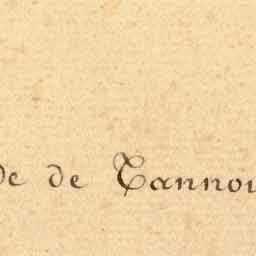 de de Cannou